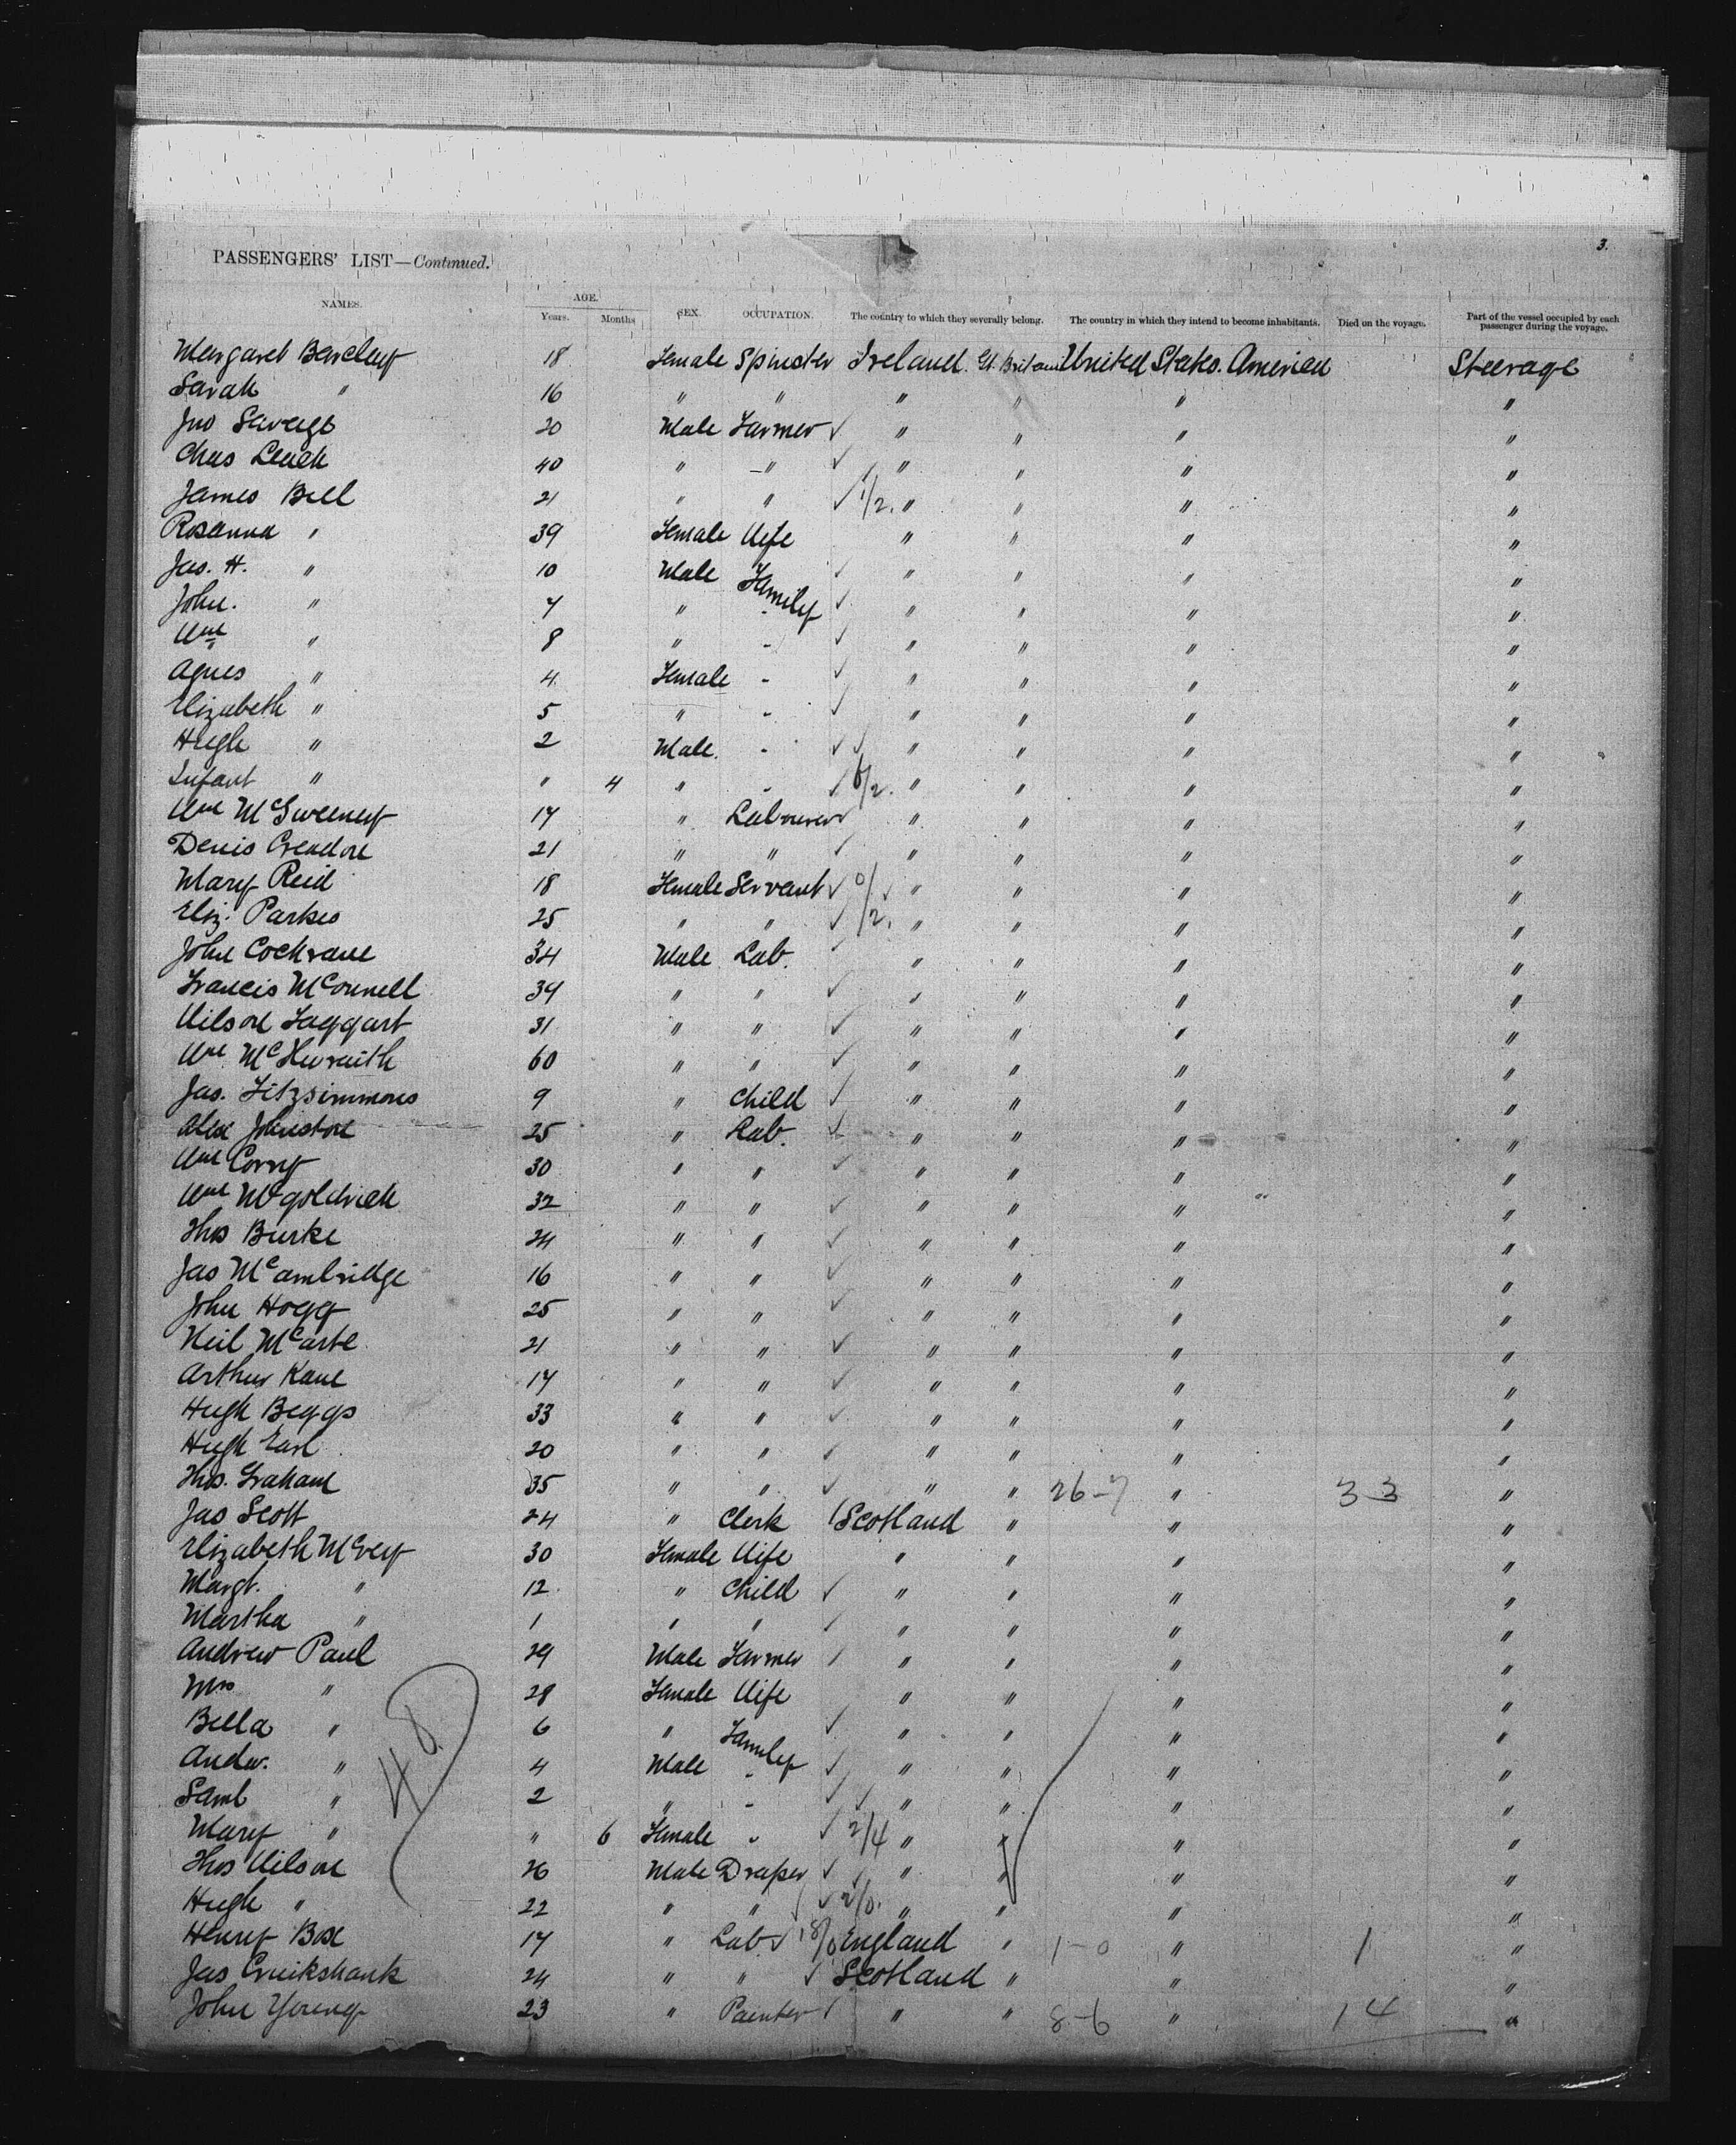 3.
PASSENGERS' LIST—Continued.
NAMES. AGE. Years. Months SEX. OCCUPATION. The country to which they severally belong. The country in which they intend to become inhabitants. Died on the voyage. Part of the vessel occupied by each passenger during the voyage.
Margaret Barclay 18 Female Spinster Ireland. Gt. Britain United States. America Steerage
Sarah " 16 " " " " " "
Jno Savage 20 Male Farmer ✓ " " " "
Chas Leach 40 " " ✓ " " " "
James Bell 21 " " ✓ 1/2. " " " "
Rosanna " 39 Female Wife " " " "
Jas. H. " 10 Male Family ✓ " " " "
John. " 7 " - ✓ " " " "
Wm " 8 " - ✓ " " " "
Agnes " 4 Female - ✓ " " " "
Elizabeth " 5 " - ✓ " " " "
Hugh " 2 Male. - ✓ ✓ " " " "
Infant " " 4 " - ✓ 6/2. " " " "
Wm McSweeney 17 " Labourer ✓ " " " "
Denis Creadon 21 " " ✓ " " " "
Mary Reid 18 Female Servant ✓ 0/ ✓ " " " "
Eliz. Parkes 25 " " ✓ /2. " " " "
John Cochrane 34 Male Lab. ✓ " " " "
Francis McConnell 34 " " ✓ " " " "
Wilson Taggart 31 " " ✓ " " " "
Wm 60 " " ✓ " " " "
Jas. Fitzsimmons 9 " Child ✓ " " " "
Alex Johnston 25 " Lab. ✓ " " " "
Wm Corry 30 " " ✓ " " " "
Wm McGoldrick 32 " " ✓ " " " "
Thos Burke 24 " " ✓ " " " "
Jas McCambridge 16 " " ✓ " " " "
John Hogg 25 " " ✓ " " " "
Neil 21 " " ✓ " " " "
Arthur Kane 17 " " ✓ " " " "
Hugh Beggs 33 " " ✓ " " " "
Hugh Earl 20 " " ✓ " " " "
Thos. Graham 35 " " ✓ " " 26-7 " 33 "
Jas Scott 24 " Clerk Scotland " " "
Elizabeth McVey 30 Female Wife " " " "
Margt. " 12 " Child ✓ " " " "
Martha " 1 " " ✓ " " " "
Andrew Paul 29 Male Farmer " " " "
Mrs " 28 Female Wife " " " "
Bella " 6 " Family ✓ " " " "
Andw. " 4 Male - ✓ " " " "
Saml " 2 " - ✓ ✓ " " " "
Mary " " 6 Female " ✓ 2/4 " " " "
Thos Wilson 26 Male Draper ✓ " " " "
Hugh " 22 " " ✓ 2/0. " " " "
Henry Box 17 " Lab. ✓ 18/0 England " 1-0 " 1 "
Jas Cruikshank 24 " " ✓ Scotland " " "
John Young 23 " Painter ✓ " " 8-6 " 14 "
48